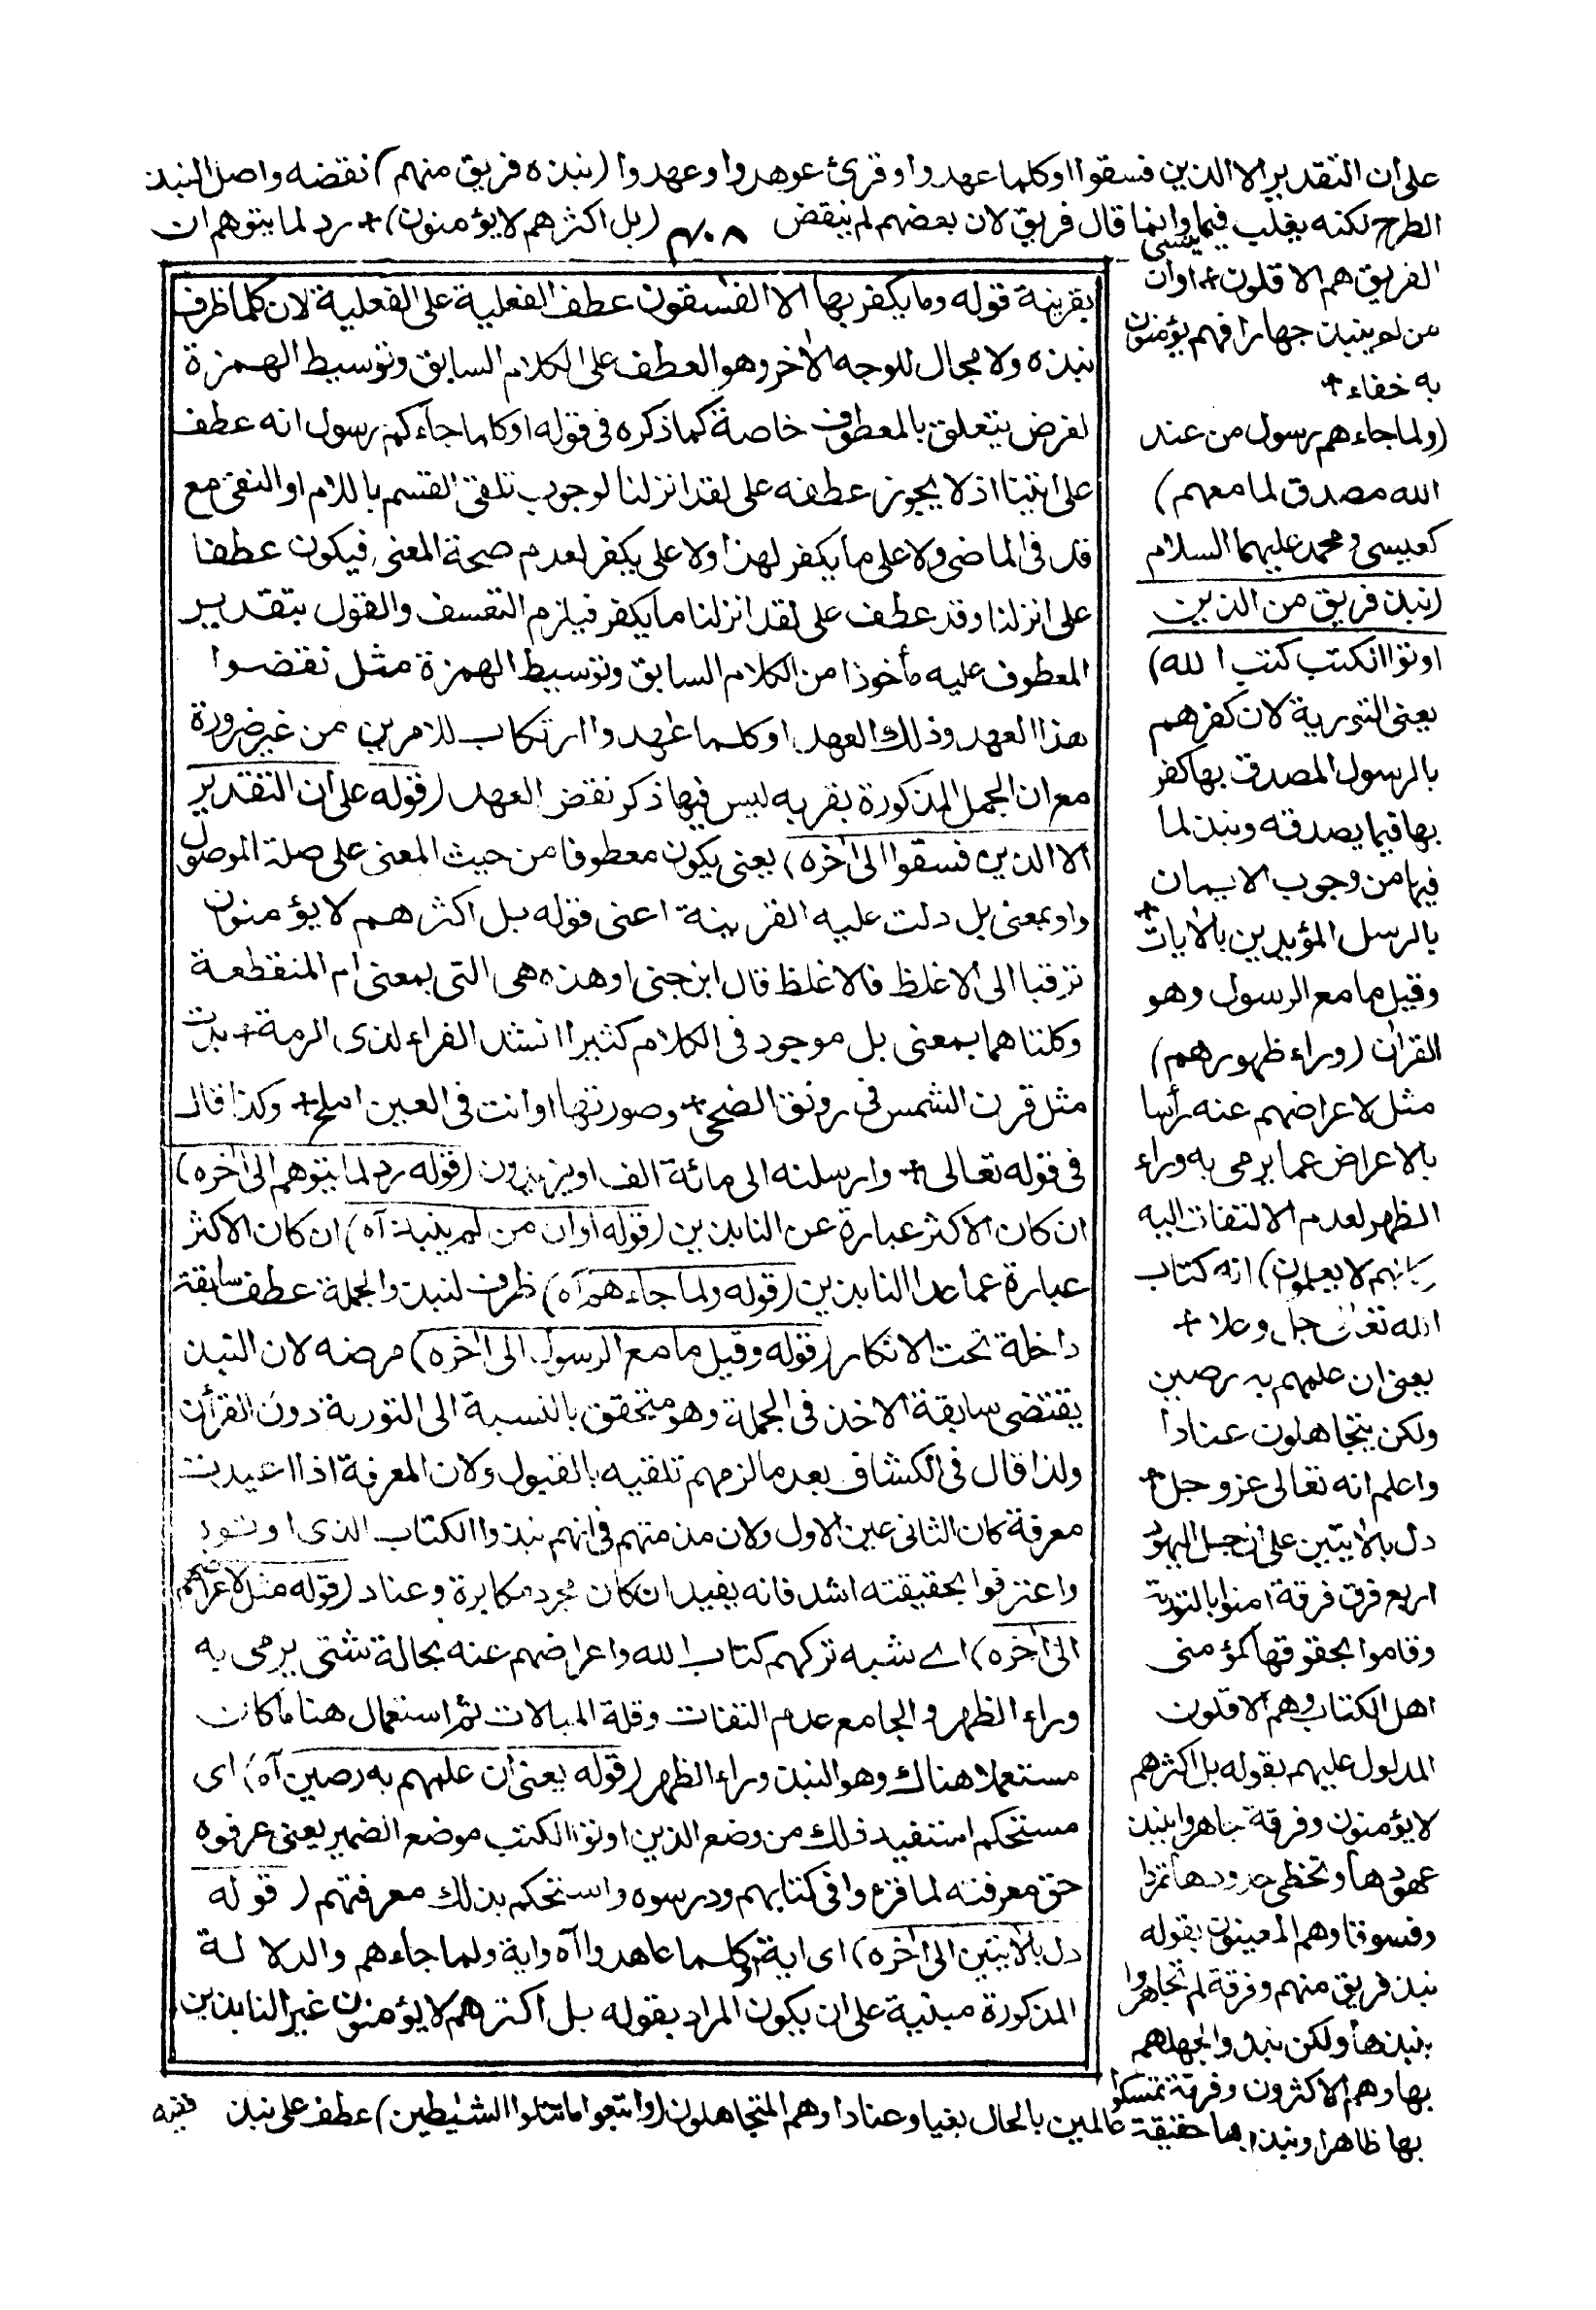 على ان التقدير الا الذين فسقوا اوكلما عهدوا وقرئ عوهدوا وعهدوا (نبذه فريق منهم) نقضه واصل النبذ
الطرح لكنه يغلب فيما ينسى وانما قال فريق لان بعضهم لم ينقض ٤٠٨ (بل اكثرهم لا يؤمنون)+ رد لما يتوهم ان
الفريق هم الاقلون+ اوان
من لم ينبذ جهارا فهم يؤمنون
به خفاء+
(ولما جاءهم رسول من عند
الله مصدق لما معهم)
كعيسى ومحمد عليهما السلام
(نبذ فريق من الذين
اوتوا الكتب كتب الله)
يعنى التورية لان كفرهم
بالرسول المصدق بها كفر
بها فيما يصدقه ونبذ لما
فيها من وجوب الايمان
بالرسل المؤيدين بالأيات+
وقيل ما مع الرسول وهو
القرأن (وراء ظهورهم)
مثل لاعراضهم عنه رأسا
بالاعراض عما يرمى به وراء
الظهر لعدم الالتفات اليه
(كانهم لا يعلمون) انه كتاب
الله تعالى جل وعلا+
يعنى ان علمهم به رصين
ولكن يتجاهلون عنادا
واعلم انه تعالى عز وجل+
دل بالأيتين على ان جل اليهود
اربع فرق فرقة أمنوا بالتورية
وقاموا بحقوقها كمؤمنى
اهل الكتاب وهم الاقلون
المدلول عليهم بقوله بل اكثرهم
لا يؤمنون وفرقة جاهروا بنبذ
عهودها وتخطى حدودها تمردا
وفسوقا وهم المعينون بقوله
نبذ فريق منهم وفرقة لم تجاهروا
بنبذها ولكن نبذوا لجهلهم
بها وهم الاكثرون وفرقة تمسكوا
بها ظاهرا ونبذوها حقيقة عالمين بالحال بغيا وعنادا وهم المتجاهلون (واتبعوا ما تتلوا الشيطين) عطف على نبذ
بقرينة قوله وما يكفر بها الا الفسقون عطف الفعلية على الفعلية لان كلما ظرف
نبذه ولا مجال للوجه الأخر وهو العطف على الكلام السابق وتوسيط الهمزة
لغرض يتعلق بالمعطوف خاصة كما ذكره فى قوله اوكلما جاءكم رسول انه عطف
على اتينا اذ لا يجوز عطفه على لقد انزلنا لوجوب تلقى القسم باللام او النفى مع
قد فى الماضى ولا على ما يكفر لهذا ولا على يكفر لعدم صحة المعنى فيكون عطفا
على انزلنا وقد عطف على لقد انزلنا ما يكفر فيلزم التعسف والقول بتقدير
المعطوف عليه مأخوذا من الكلام السابق وتوسيط الهمزة مثل نقضوا
هذا العهد وذلك العهد اوكلما عهدوا ارتكاب للامرين من غير ضرورة
مع ان الجمل المذكورة بقربه ليس فيها ذكر نقض العهد (قوله على ان التقدير
الا الذين فسقوا الى أخره) يعنى يكون معطوفا من حيث المعنى على صلة الموصول
واو بمعنى بل دلت عليه القرينة اعنى قوله بل اكثرهم لا يؤمنون
ترقبا الى الاغلظ فالاغلظ قال ابن جنى او هذه هى التى بمعنى ام المنقطعة
وكلتاهما بمعنى بل موجود فى الكلام كثيرا انشد الفراء لذى الرمة+ بدت
مثل قرن الشمس فى رونق الضحى+ وصورتها او انت فى العين املح+ وكذا قال
فى قوله تعالى+ وارسلنه الى مائة الف او يزيدون (قوله رد لما يتوهم الى أخره)
ان كان الاكثر عبارة عن النابذين (قوله اوان من لم ينبذ آه) ان كان الاكثر
عبارة عما عدا النابذين (قوله ولما جاءهم آه) ظرف لنبذ والجملة عطف سابقة
داخلة تحت الانكار (قوله وقيل ما مع الرسول الى أخره) مرضه لان النبذ
يقتضى سابقة الاخذ فى الجملة وهو متحقق بالنسبة الى التورية دون القرأن
ولذا قال فى الكشاف بعد ما لزمهم تلقيه بالقبول ولان المعرفة اذا اعيدت
معرفة كان الثانى عين الاول ولان مذمتهم فى انهم نبذوا الكتاب الذى اوتوه
واعترفوا بحقيقته اشد فانه يفيد ان كان مجرد مكابرة وعناد (قوله مثل لاعراضهم
الى أخره) اے شبه تركهم كتاب الله واعراضهم عنه بحالة شئ يرمى به
وراء الظهر والجامع عدم التفات وقلة المبالات ثم استعمال هنا ما كان
مستعملا هناك وهو النبذ وراء الظهر (قوله يعنى ان علمهم به رصين آه) اى
مستحكم استفيد ذلك من وضع الذين اوتوا الكتب موضع الضمير يعنى عرفوه
حق معرفته لما قرءوا فى كتابهم ودرسوه واستحكم بذلك معرفتهم (قوله
دل بالأيتين الى أخره) اى اية اوكلما عاهدوا آه واية ولما جاءهم والدلالة
المذكورة مبنية على ان يكون المراد بقوله بل اكثرهم لا يؤمنون غير النابذين